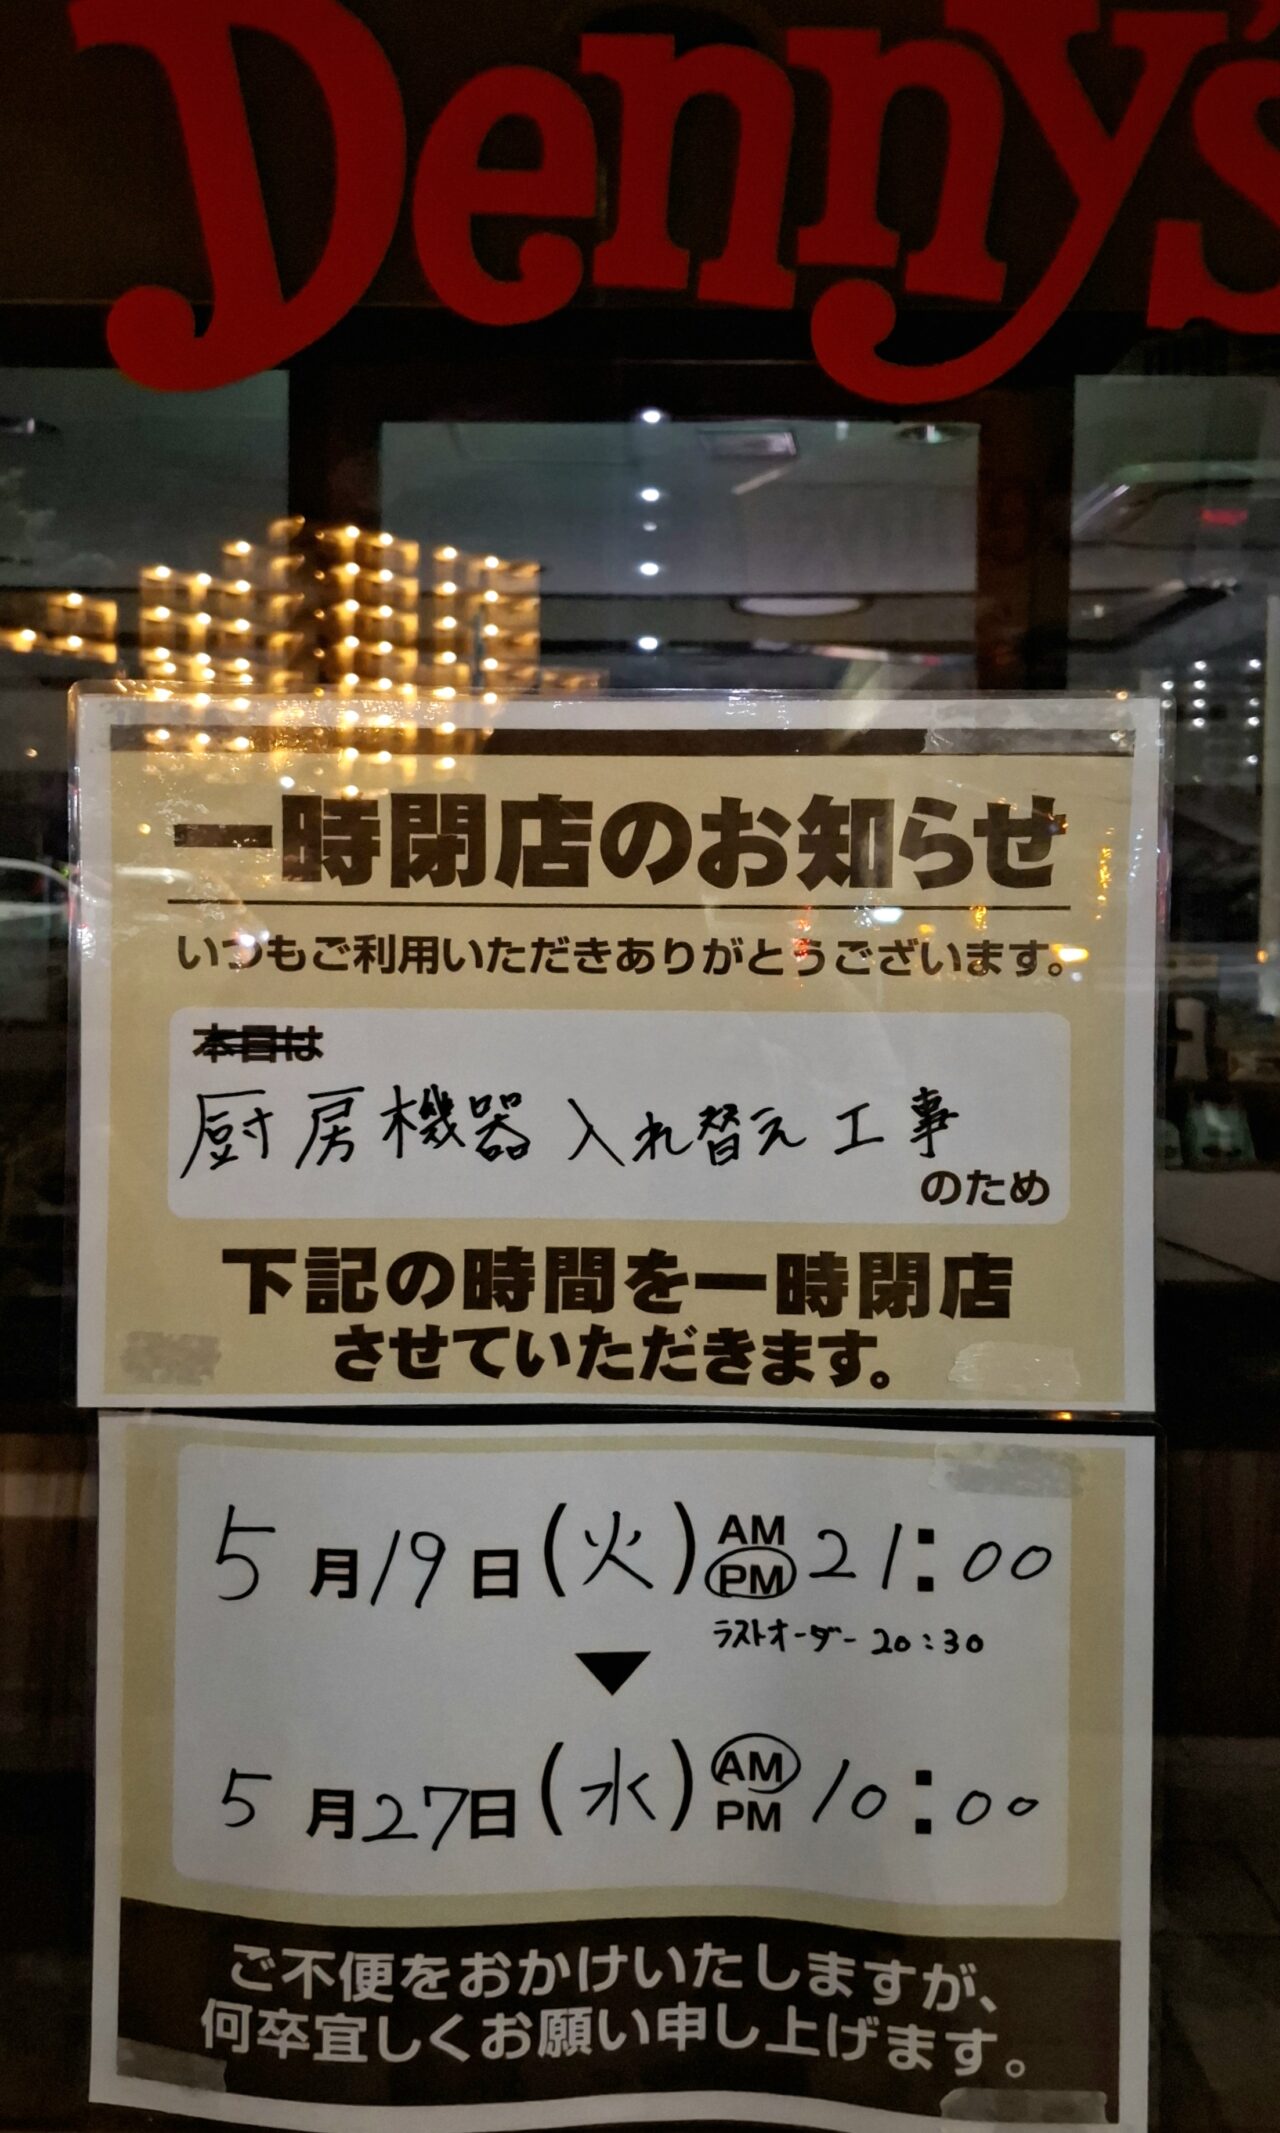 Denny's
一時閉店のお知らせ
いつもご利用いただきありがとうございます。
本日は
厨房機器入れ替え工事
のため
下記の時間を一時閉店
させていただきます。
5月19日(火) AM PM 21:00
ラストオーダー 20:30
▼
5月27日(水) AM PM 10:00
ご不便をおかけいたしますが、
何卒宜しくお願い申し上げます。